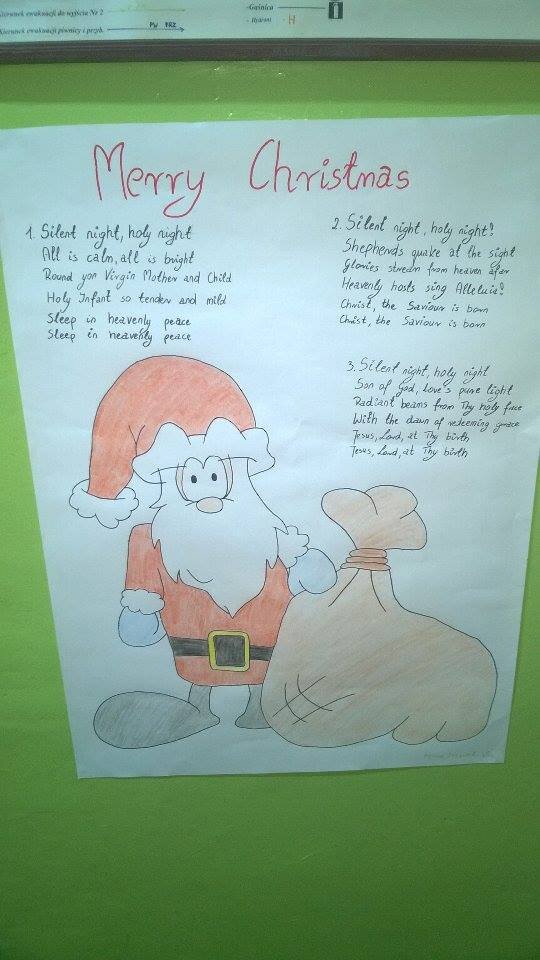 Kierunek ewakuacji do wyjścia Nr 2
Kierunek ewakuacji piwnicy i przyb.
PW PRZ
-Gaśnica
- Hydrant - H
Merry Christmas
1. Silent night, holy night
All is calm, all is bright
Round yon Virgin Mother and Child
Holy Infant so tender and mild
Sleep in heavenly peace
Sleep in heavenly peace
2. Silent night, holy night!
Shepherds quake at the sight
Glories stream from heaven afar
Heavenly hosts sing Alleluia!
Christ, the Saviour is born
Christ, the Saviour is born
3. Silent night, holy night
Son of God, love's pure light
Radiant beams from Thy holy face
With the dawn of redeeming grace
Jesus, Lord, at Thy birth
Jesus, Lord, at Thy birth